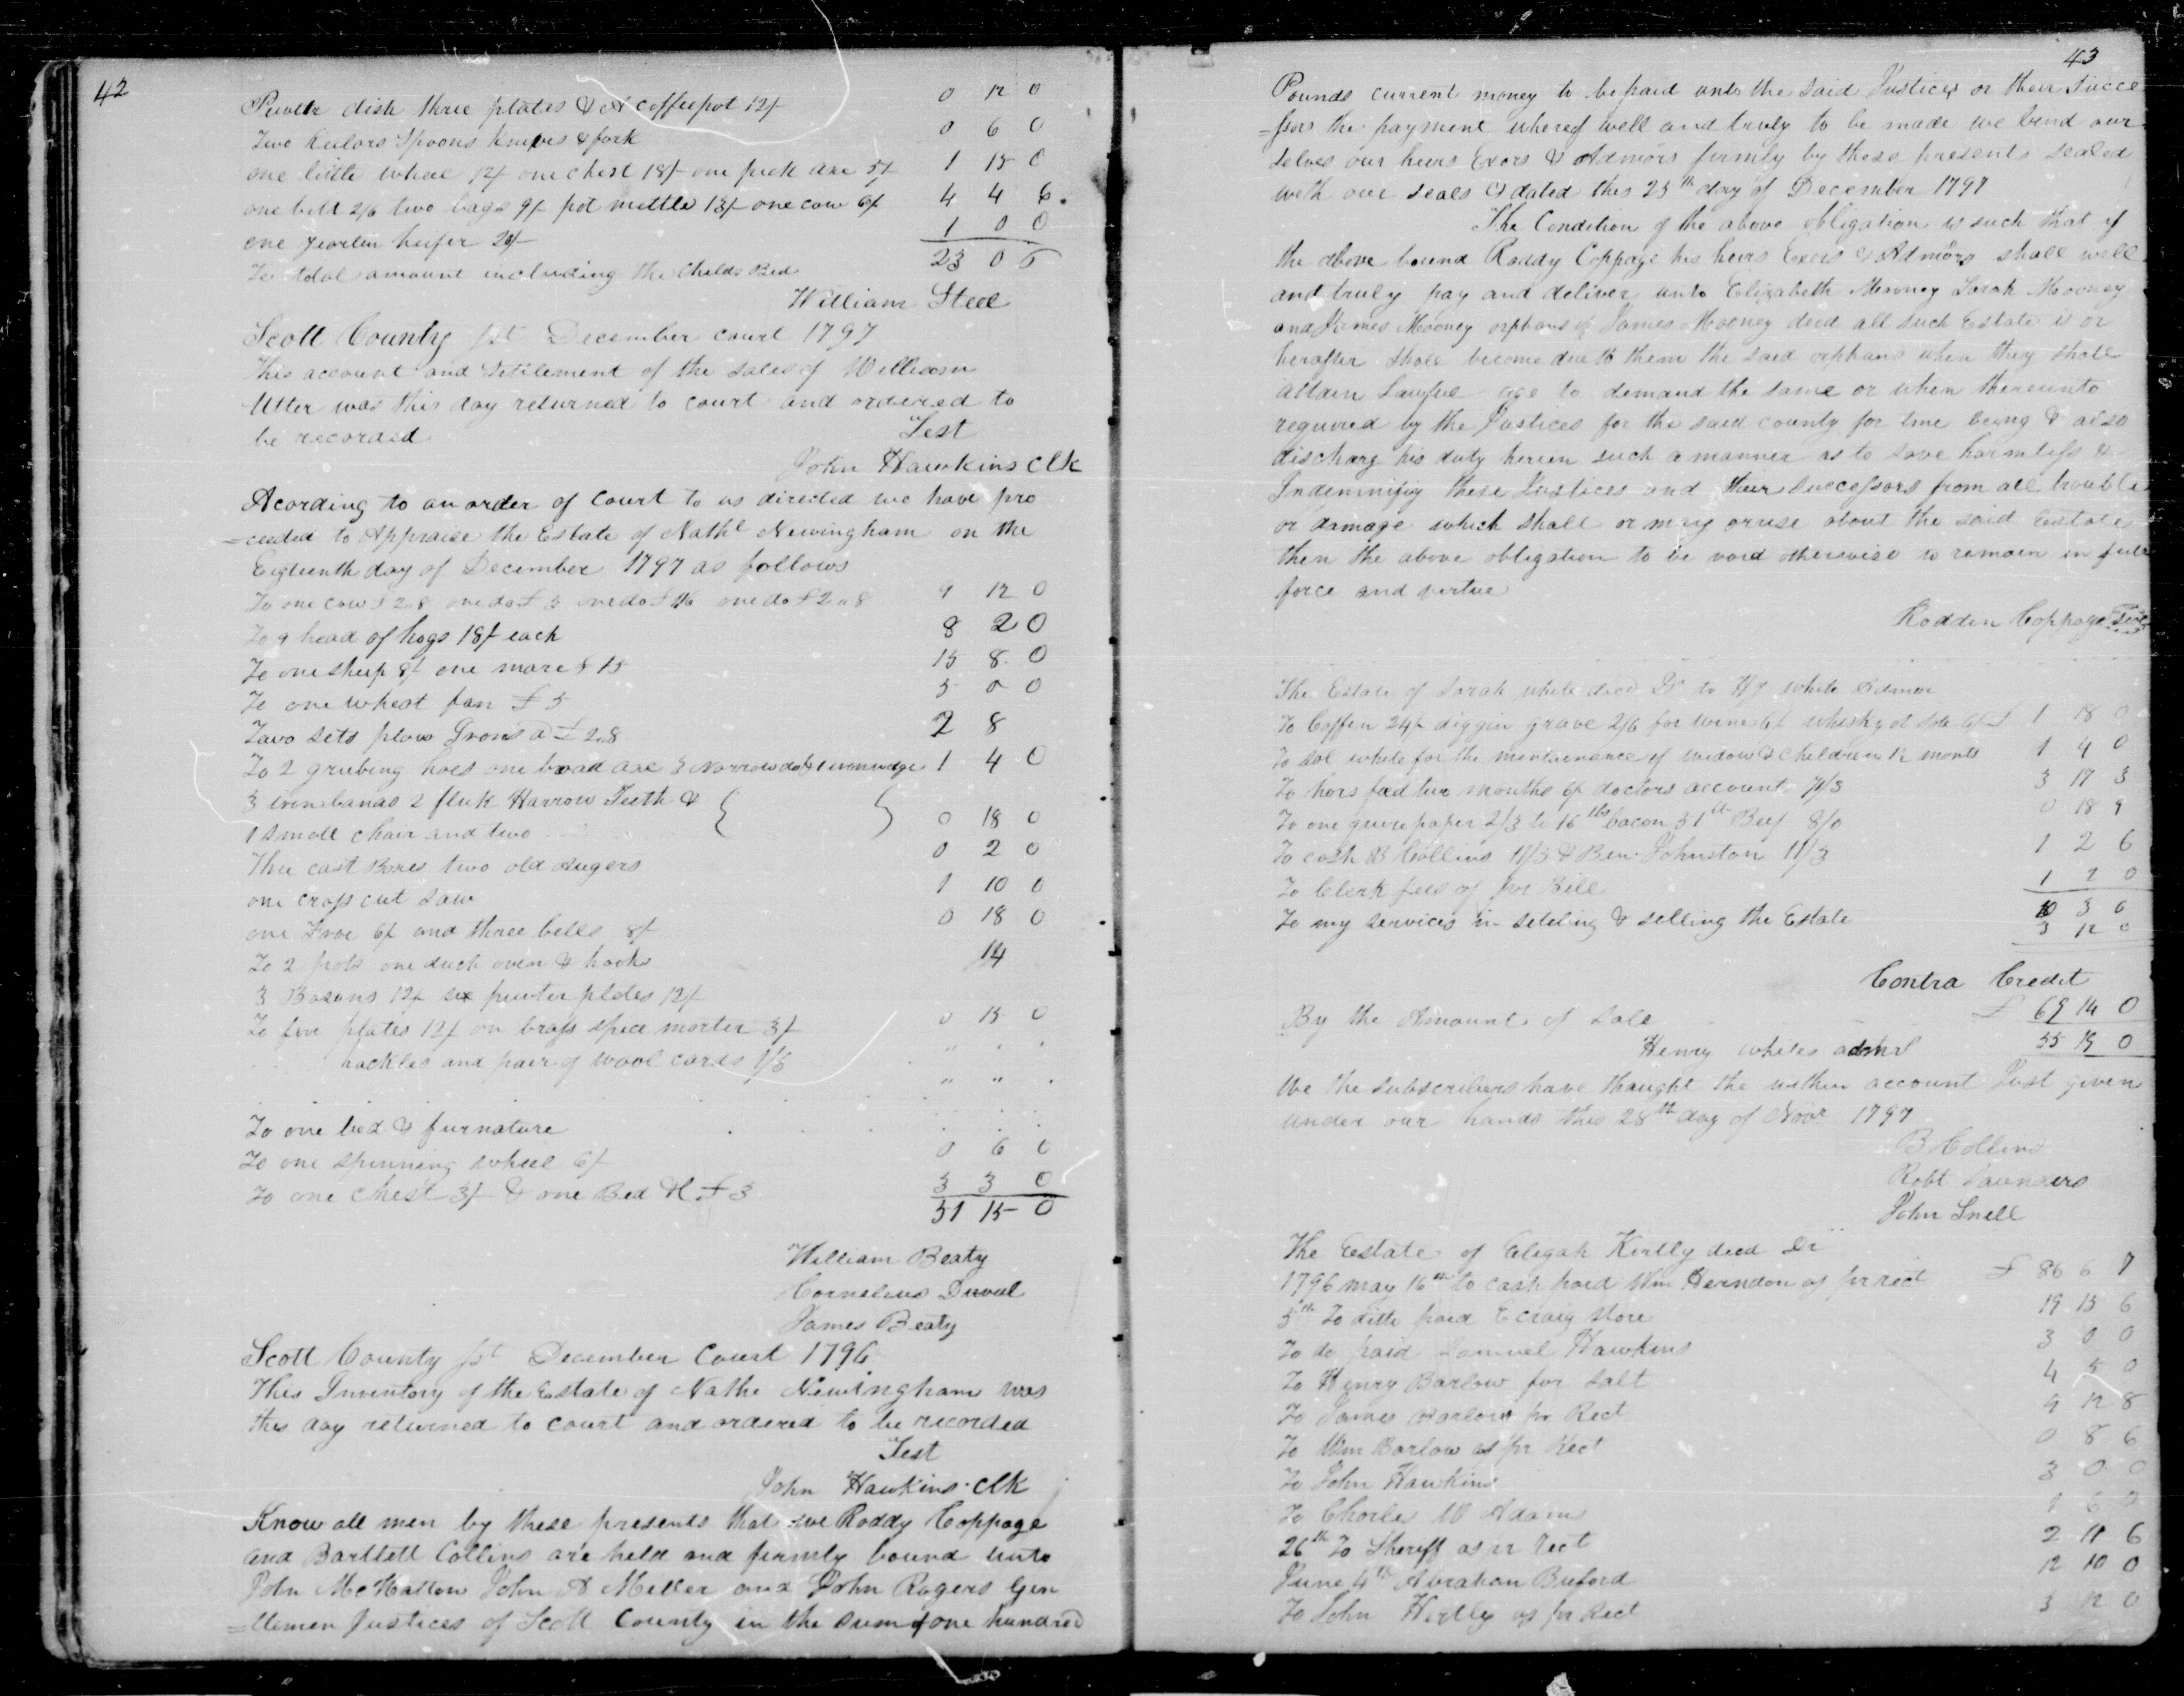 42
Pewter dish three plates & A coffeepot 12/ 0 12 0
Two Keilors Spoons Knives & fork 0 6 0
one little wheel 12/ one chest 18/ one pick axe 5/ 1 15 0
one bell 2/6 two bags 9/ pot mettle 13/ one cow 6/ 4 4 6
one yearlin heifer 20/ 1 0 0
To total amount including the Childs Bed 23 0 6
William Steel
Scott County Sct December court 1797
This account and Settlement of the sales of William
Utter was this day returned to court and ordered to
be recorded Test
John Hawkins Clk
Acording to an order of Court to us directed we have pro
=ceeded to Appraise the Estate of Nathl Newingham on the
Eigteenth day of December 1797 as follows
To one cow £2..8 one do £3 one do £1 16 one do £2..8 9 12 0
To 9 head of hogs 18/ each 8 2 0
To one sheep 8/ one mare £15 15 8 0
To one wheat fan £5 5 0 0
Two sets plow Irons a £2..8 2 8
To 2 grubing hoes one broad axe 3 Norrow do & 1 iron wedge 1 4 0
3 iron bands 2 fluk Harrow Teeth &
1 small chair and two 0 18 0
Three cast Boxes two old Augers 0 2 0
one cross cut saw 1 10 0
one Froe 6/ and three bells 8/ 0 18 0
To 2 pots one duch oven & hooks 14
3 Basons 12/ six pewter plates 12/
To five plates 12/ on brass spice morter 3/ 0 15 0
hackles and pair of wool cards 1/3
To one bed & furnature
To one spinning wheel 6/ 0 6 0
To one chest 3/ & one Bed &c £3 3 3 0
51 15 0
William Beaty
Cornelius Duval
James Beaty
Scott County Sct December Court 1796
This Inventory of the Estate of Nathe Newingham was
this day returned to court and ordered to be recorded
Test
John Hawkins Clk
Know all men by these presents that we Roddy Coppage
and Bartlett Collins are held and firmly bound unto
John McHatton John A Miller and John Rogers Gen
=tlemen Justices of Scott County in the sum of one hundred
43
Pounds current money to be paid unto the said Justices or their Succe
=ssors the payment whereof well and truly to be made we bind our
selves our heirs Exors & Admors firmly by these presents sealed
with our seals & dated this 25th day of December 1797
The Condition of the above obligation is such that if
the above bound Roddy Coppage his heirs Exors & Admors shall well
and truly pay and deliver unto Elizabeth Mooney Sarah Mooney
and James Mooney orphans of James Mooney decd all such Estate is or
herafter shall become due to them the said orphans when they shall
attain Lawful age to demand the same or when thereunto
required by the Justices for the said county for time being & also
discharg his duty herein such a manner as to save harmless &
Indemnifiy these Justices and their successors from all trouble
or damage which shall or may aruse about the said Eestate
then the above obligation to be void otherwise to remain in full
force and virtue
Rodden Coppage Seal
The Estate of Sarah white decd Dr to Hy white Admor
To Coffin 24/ diggin grave 2/6 for wine 6/ whisky at sale 6/ £ 1 18 0
To Sol white for the mentainance of widow & children 1½ month 1 4 0
To hors feed two months 6/ doctors account 71/3 3 17 3
To one quire paper 2/3 to 16 lbs bacon 51 lb Beef 8/0 0 18 9
To cash B Collins 11/3 & Ben Johnston 11/3 1 2 6
To Clerk fees as per Bill 1 2 0
To my services in setling & selling the Estate 10 3 6
3 12 0
Contra Credit
By the Amount of Sale £ 69 14 0
Henry whites admr 55 19 0
We the subscribers have thaught the within account Just given
under our hands this 28th day of Novr 1797
B Collins
Robt Saunders
John Snell
The Eestate of Elegah Kertly decd Dr
1796 may 16th to cash paid Wm Herndon as pr rect £ 86 6 7
5th To ditto paid E craig store 19 15 6
To do paid Samuel Hawkins 3 0 0
To Henry Barlow for Salt 4 5 0
To James Barlow pr Rect 9 12 8
To Wm Barlow as pr Rect 0 8 6
To John Hawkins 3 0 0
To Charles W Adam 1 6
26th To Sheriff as pr rect 2 11 6
June 4th Abraham Buford 12 10 0
To John Kertly as pr Rect 3 12 0